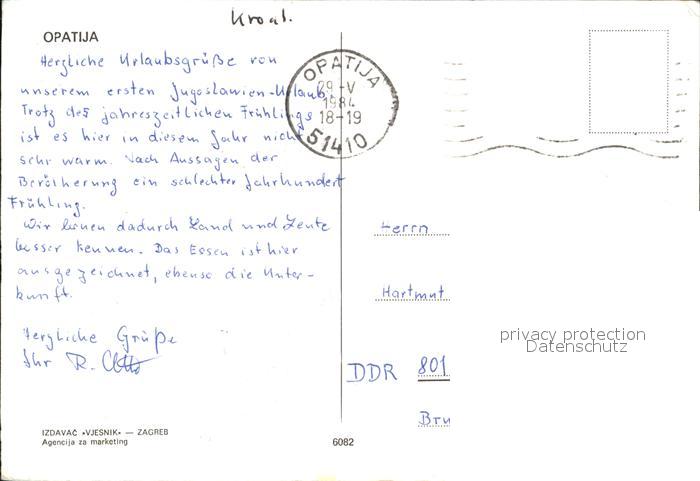 Kroat.
OPATIJA
Herzliche Urlaubsgrüße von
unserem ersten Jugoslawien-Urlaub.
Trotz des jahreszeitlichen Frühlings
ist es hier in diesem Jahr nicht
sehr warm. Nach Aussagen der
Bevölkerung ein schlechter Jahrhundert
Frühling.
Wir lernen dadurch Land und Leute
besser kennen. Das Essen ist hier
ausgezeichnet, ebenso die Unter-
kunft.
Herzliche Grüße
Ihr R. Otto
IZDAVAČ «VJESNIK» — ZAGREB
Agencija za marketing
6082
OPATIJA
29-V
1984
18-19
51410
Herrn
Hartmut
privacy protection
Datenschutz
DDR 801